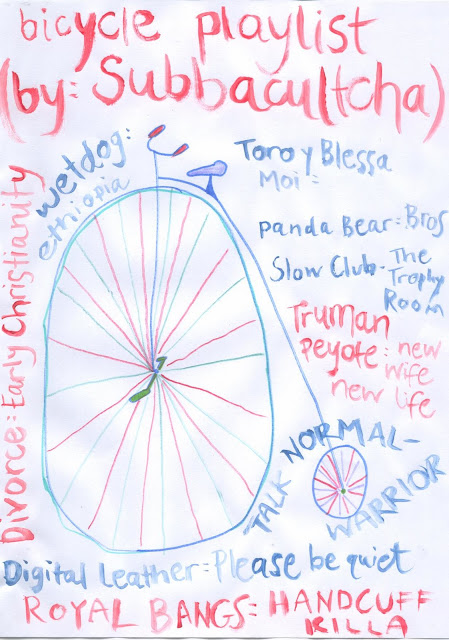 bicycle playlist
(by: Subbacultcha)
Wetdog:
ethiopia
Toro y Blessa
Moi =
Panda Bear = Bros
Slow Club - The
Trophy
Room
Truman
Peyote : new
wife
new life
Divorce = Early Christianity
TALK NORMAL -
WARRIOR
Digital Leather = Please be quiet
ROYAL BANGS = HANDCUFF
KILLA